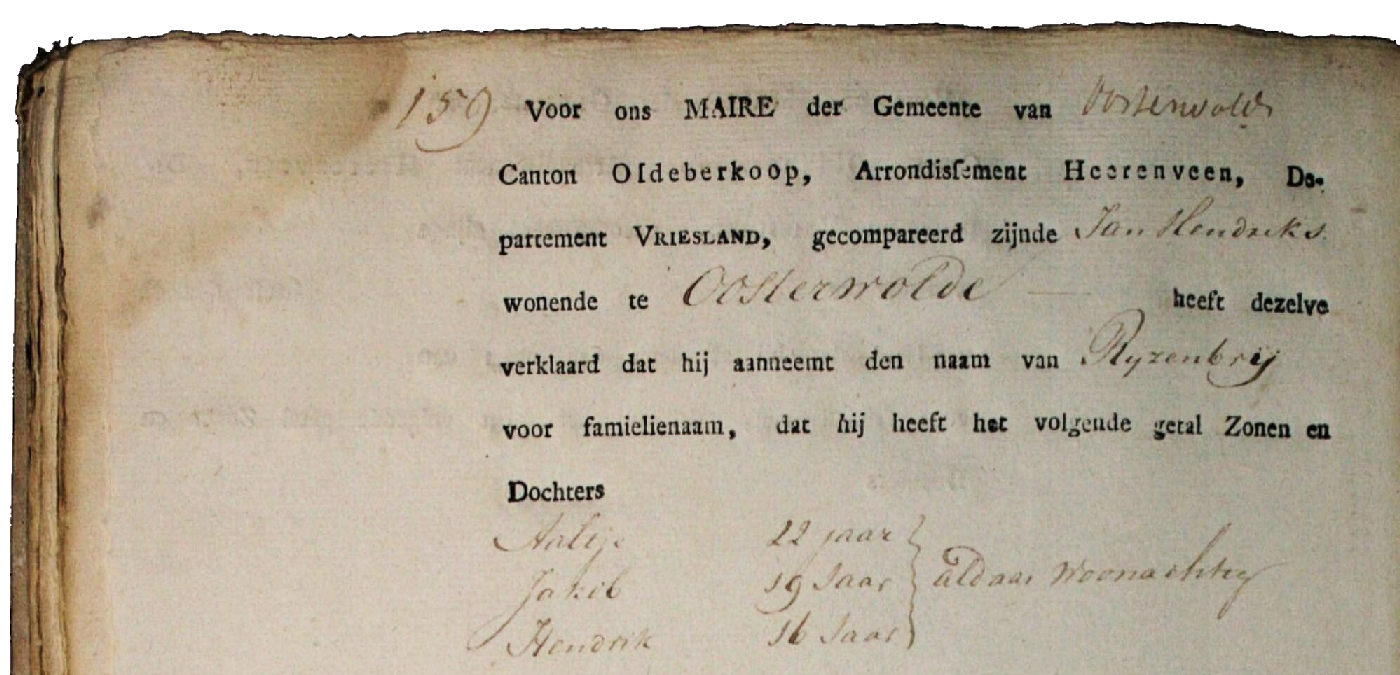 159 Voor ons MAIRE der Gemeente van Oosterwolde
Canton Oldeberkoop, Arrondissement Heerenveen, De-
partement VRIESLAND, gecompareerd zijnde Jan Hendriks
wonende te Oosterwolde — heeft dezelve
verklaard dat hij aanneemt den naam van Ryzenbrij
voor famielienaam, dat hij heeft het volgende getal Zonen en
Dochters
Aaltje 22 jaar
Jakob 19 Jaar aldaar Woonachtig
Hendrik 16 Jaar